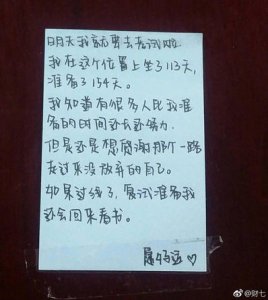 明天我就要去考试啦
我在这个位置上坐了113天，
准备了154天。
我知道有很多人比我准
备的时间还长还努力.
但是还是想感谢那个一路
走过来没放弃的自己。
如果过线了，复试准备我
还会回来看书。
@财七